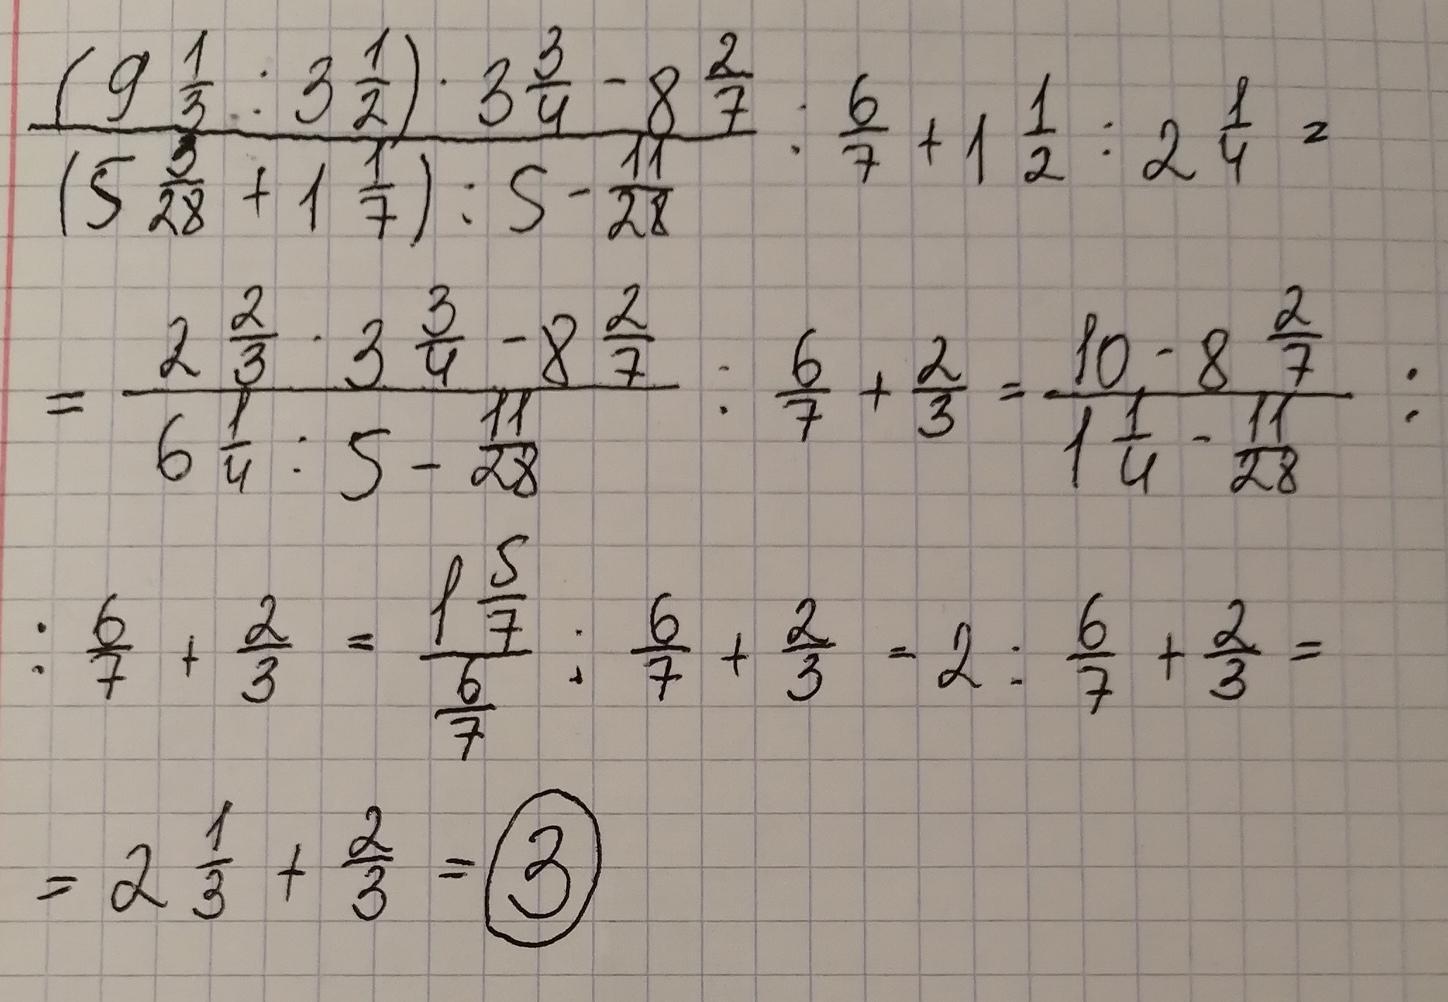 ((9 1/3 : 3 1/2) · 3 3/4 - 8 2/7) / ((5 3/28 + 1 1/7) : 5 - 11/28) : 6/7 + 1 1/2 : 2 1/4 =
= (2 2/3 · 3 3/4 - 8 2/7) / (6 1/4 : 5 - 11/28) : 6/7 + 2/3 = (10 - 8 2/7) / (1 1/4 - 11/28) :
: 6/7 + 2/3 = (1 5/7) / (6/7) : 6/7 + 2/3 = 2 : 6/7 + 2/3 =
= 2 1/3 + 2/3 = 3